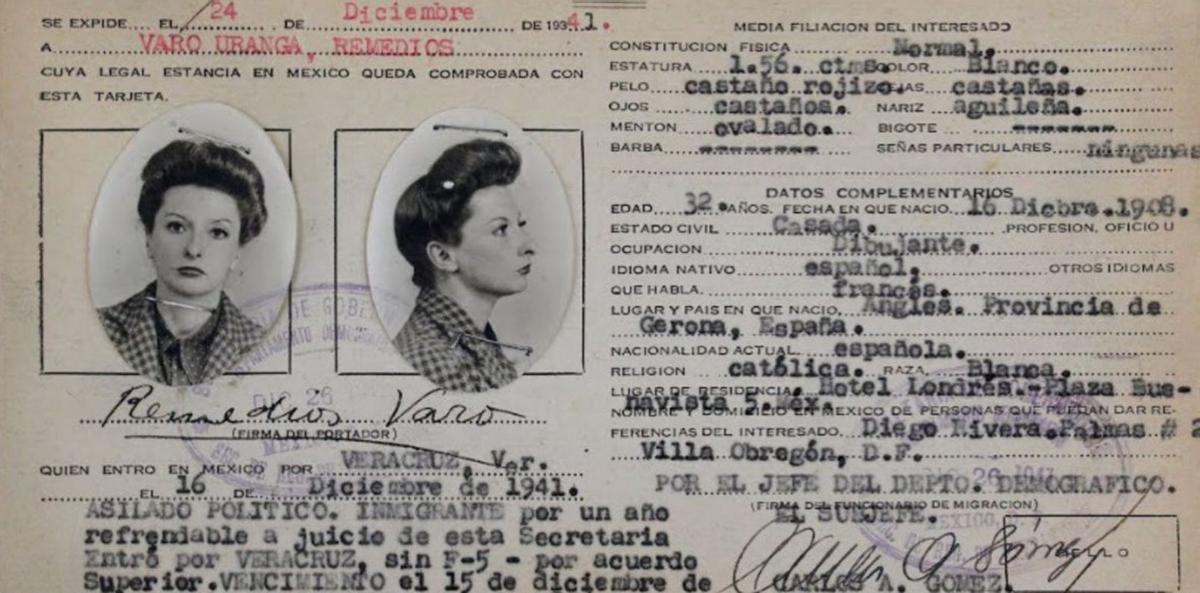 SE EXPIDE EL 24 DE Diciembre DE 1941.
A VARO URANGA, REMEDIOS
CUYA LEGAL ESTANCIA EN MEXICO QUEDA COMPROBADA CON
ESTA TARJETA.
Remedios Varo
(FIRMA DEL PORTADOR)
QUIEN ENTRO EN MEXICO POR VERACRUZ, Ver.
EL 16 DE Diciembre de 1941.
ASILADO POLITICO. INMIGRANTE por un año
refrendable a juicio de esta Secretaria
Entró por VERACRUZ, sin F-5 - por acuerdo
Superior.VENCIMIENTO el 15 de diciembre de
MEDIA FILIACION DEL INTERESADO
CONSTITUCION FISICA Normal.
ESTATURA 1.56. ctms. COLOR Blanco.
PELO castaño rojizo. CEJAS castañas.
OJOS castaños. NARIZ aguileña.
MENTON ovalado. BIGOTE --------
BARBA --------- SEÑAS PARTICULARES ningunas
DATOS COMPLEMENTARIOS
EDAD 32. AÑOS. FECHA EN QUE NACIO 16 Dicbre.1908.
ESTADO CIVIL Casada. PROFESION, OFICIO U
OCUPACION Dibujante.
IDIOMA NATIVO español. OTROS IDIOMAS
QUE HABLA. francés.
LUGAR Y PAIS EN QUE NACIO, Anglés. Provincia de
Gerona, España.
NACIONALIDAD ACTUAL española.
RELIGION católica. RAZA, Blanca.
LUGAR DE RESIDENCIA. Hotel Londres.-Plaza Bue-
navista 5. Méx.
NOMBRE Y DOMICILIO EN MEXICO DE PERSONAS QUE PUEDAN DAR RE-
FERENCIAS DEL INTERESADO. Diego Rivera.Palmas # 2
Villa Obregón, D.F.
POR EL JEFE DEL DEPTO. DEMOGRAFICO.
(FIRMA DEL FUNCIONARIO DE MIGRACION)
EL SUBJEFE.
CARLOS A. GOMEZ.